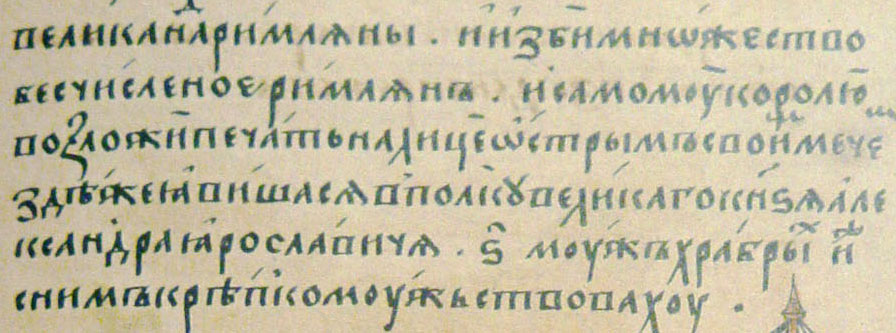 велика надримляны . ииꙁби многожество
бесчисленое римлянъ . и самомꙋ королю
воꙁложи печать налице острымъ своимъ мече
ꙁдѣже ꙗвишася вполкꙋ великаго кнѕя але
ксандра ꙗрославичя . ѕ҃ моужь храбрыхъ иже
снимъ крѣпко моужьствовахоу .